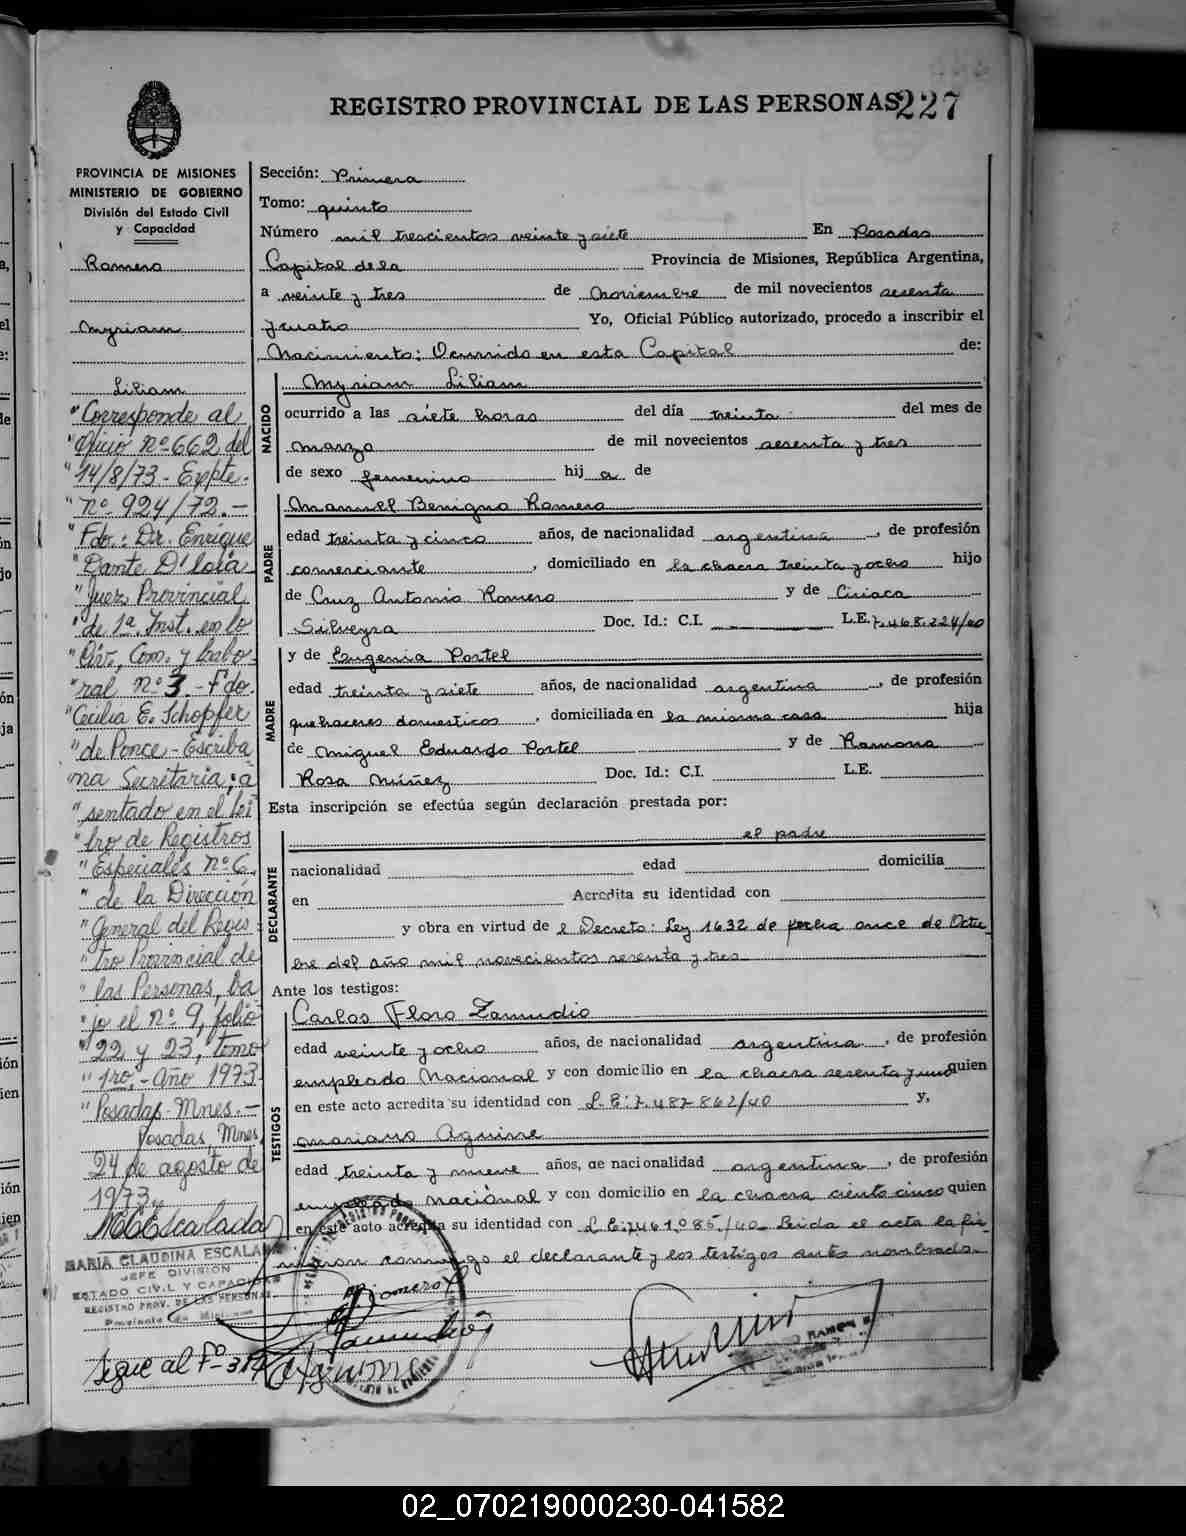 REGISTRO PROVINCIAL DE LAS PERSONAS 227
PROVINCIA DE MISIONES
MINISTERIO DE GOBIERNO
División del Estado Civil
y Capacidad
Romero
Myriam
Liliam
"Corresponde al
"Oficio nº 662 del
"14/8/73 - Expte.
"nº 924/72.-
"Fdo.: Dr. Enrique
"Dante D'Iola
"Juez Provincial
"de 1ª. Inst. en lo
"Civ., Com. y Labo-
"ral nº 3.- Fdo.
"Cecilia E. Schopfer
"de Ponce - Escriba
na Secretaria; a
"sentado en el Li
"bro de Registros
"Especiales nº 6,
"de la Dirección
"General del Regis
"tro Provincial de
"las Personas, ba
"jo el nº 9, folio
"22 y 23, tomo
"1ro.- Año 1973
"Posadas- Mnes.-
Posadas, Mnes,
24 de agosto de
1973.
MARIA CLAUDINA ESCALA
JEFE DIVISIÓN
ESTADO CIVIL Y CAPACIDAD
REGISTRO PROV. DE LAS PERSONAS
Provincia de Misiones
Segue al Fº
Sección: Primera
Tomo: quinto
Número mil trescientos veinte y siete En Posadas
Capital de la Provincia de Misiones, República Argentina,
a veinte y tres de Noviembre de mil novecientos sesenta
y cuatro Yo, Oficial Público autorizado, procedo a inscribir el
Nacimiento: Ocurrido en esta Capital de:
NACIDO
Myriam Liliam
ocurrido a las siete horas del día treinta del mes de
marzo de mil novecientos sesenta y tres
de sexo femenino hij a de
PADRE
Manuel Benigno Romero
edad treinta y cinco años, de nacionalidad argentina, de profesión
comerciante, domiciliado en la chacra treinta y ocho hijo
de Cruz Antonio Romero y de Ciriaca
Silveyra Doc. Id.: C.I. L.E. 7.468.224/40
MADRE
y de Eugenia Portel
edad treinta y siete años, de nacionalidad argentina, de profesión
quehaceres domesticos, domiciliada en la misma casa hija
de Miguel Eduardo Portel y de Ramona
Rosa Núñez Doc. Id.: C.I. L.E.
Esta inscripción se efectúa según declaración prestada por:
DECLARANTE
el padre
nacionalidad edad domicilia
en Acredita su identidad con
y obra en virtud de l Decreto: Ley 1632 de fecha once de Octu
bre del año mil novecientos sesenta y tres
Ante los testigos:
TESTIGOS
Carlos Floro Zamudio
edad veinte y ocho años, de nacionalidad argentina, de profesión
empleado Nacional y con domicilio en la chacra sesenta y uno quien
en este acto acredita su identidad con L.E: 7.487862/40 y,
Mariano Aguirre
edad treinta y nueve años, de nacionalidad argentina, de profesión
empleado nacional y con domicilio en la chacra ciento cinco quien
en este acto acredita su identidad con L.E: 7.461.085./40 Leida el acta la fir
maron conmigo el declarante y los testigos antes nombrado
Romero
Zamudio
Aguirre
02_070219000230-041582